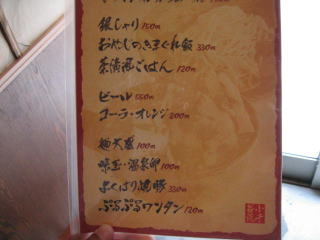 銀しゃり 150円
おやじのきまぐれ飯 330円
茶漬風ごはん 120円
ビール 550円
コーラ・オレンジ 200円
麺大盛 100円
味玉・温泉卵 100円
よくばり焼豚 330円
ぷるぷるワンタン 120円